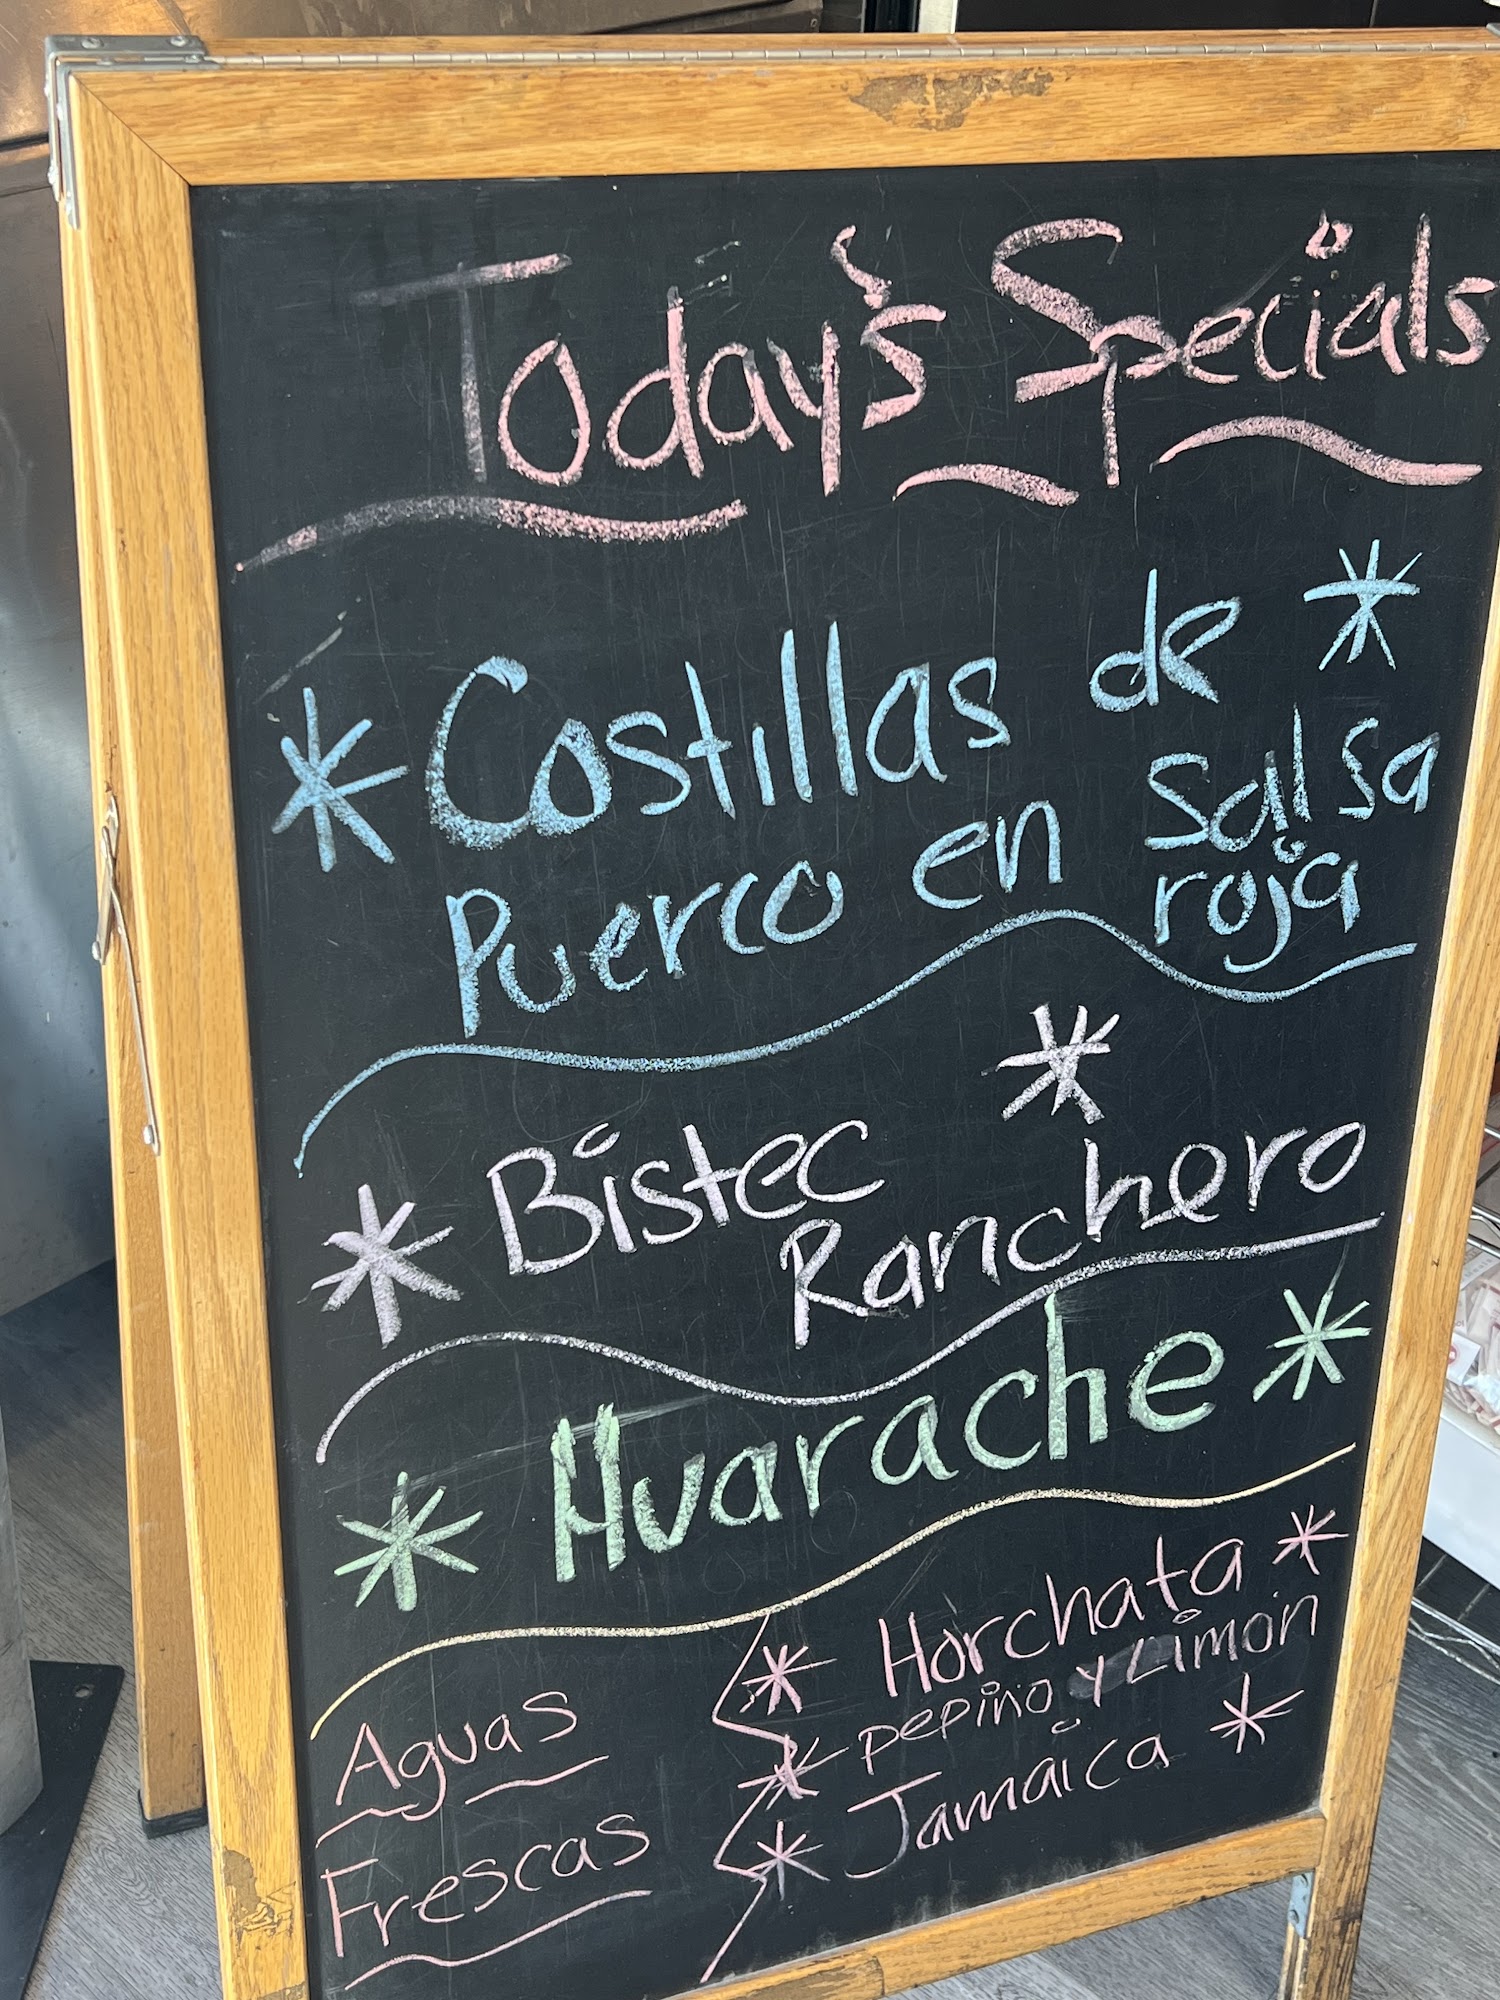 Today's Specials
Costillas de
Puerco en salsa
roja
Bistec
Ranchero
Huarache
Aguas
Frescas
Horchata
pepino y Limon
Jamaica